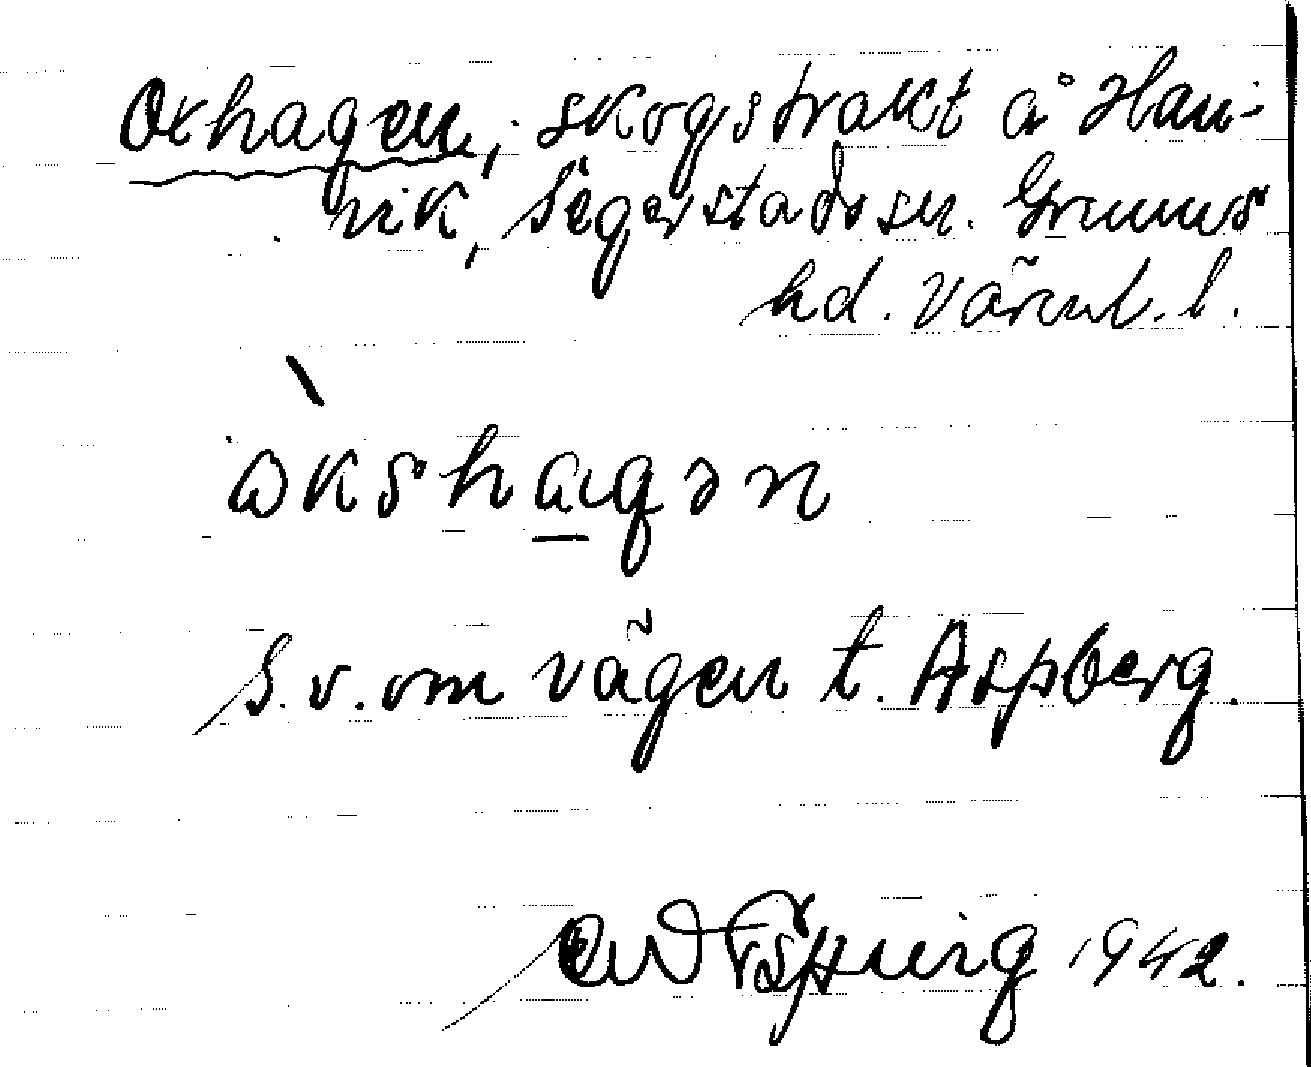 Oxhagen, skogstrakt å Han-
vik, Segerstads sn. Grums
hd. Värml. l.
òkshagən
S.v. om vägen t. Aspberg.
1942.